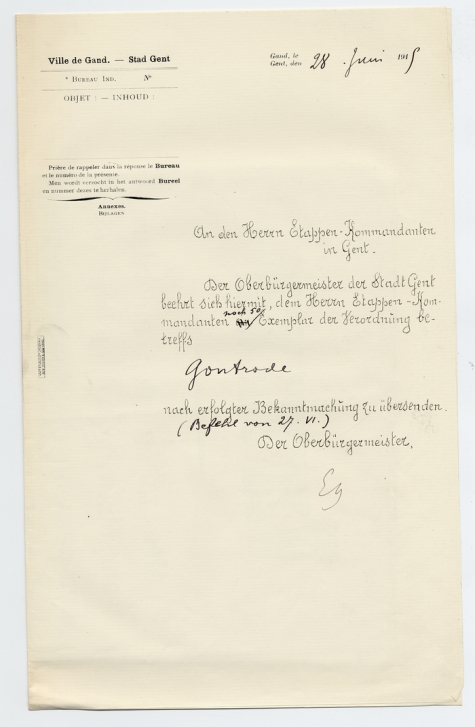 Ville de Gand. — Stad Gent
Gand, le
Gent, den 28 Juni 1915
* BUREAU IND. N°
OBJET : — INHOUD :
Prière de rappeler dans la réponse le Bureau
et le numéro de la présente.
Men wordt verzocht in het antwoord Bureel
en nummer dezes te herhalen.
Annexes.
BIJLAGEN
An den Herrn Etappen-Kommandanten
in Gent.
Der Oberbürgermeister der Stadt Gent
beehrt sich hiermit, dem Herrn Etappen-Kom-
noch 50
mandanten Exemplar der Verordnung be-
treffs
Gontrode
nach erfolgter Bekanntmachung zu übersenden.
(Befehl von 27. VI.)
Der Oberbürgermeister,